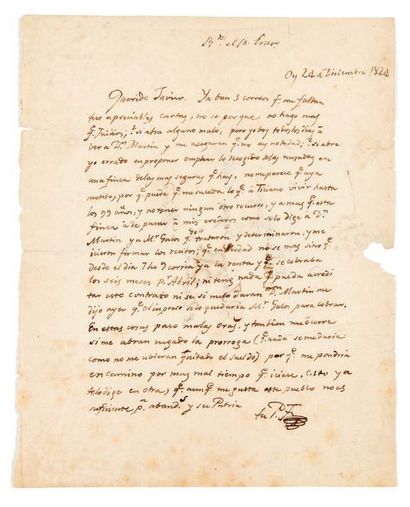 Oy 24 de Diciembre 1824
Querido Javier. Ya ban 3 correos q.e me faltan
tus apreciables cartas, no se por que no hago mas
q.e si abra algo malo, pero yo boy todos los dias a
ver a D.n Martin y me asegura q.e no ay nobedad; si abre
yo errado en proponer emplear lo recogido de las mesadas en
una finca de las mas seguras q.e hay, no me parece q.e aya
motibo, por q.e puede q.e me suceda lo q.e a Ticiano vivir hasta
los 99 años, y no tener ningun otro recurso, y a mas q.e esta
finca a de pasar a mis erederos como se lo dige a D.n
Martin y a M.r Galos q.e trataron y determinaron, y me
icieron firmar los recibos; q.e en berdad no se mas sino q.e
desde el dia 7 ko 9 corria ya la renta y q.e se cobraba
los seis meses p.r Abril; ni tengo nada q.e pueda acredi
tar este contrato ni se si me lo daran. D.n Martin me
dijo ayer q.e el impreso solo quedaria M.r Galos para cobrar.
En estas cosas paso malas oras, y tanbien me ocurre
si me abran negado la prorroga (q.e nada se me daria
como no me ubieran quitado el sueldo) por q.e me pondria
en camino por mas mal tiempo q.e iciese. esto ya
te lo dige en otra, q.e aunq.e me gusta este pueblo no es
suficiente p.a aband.r y su Patria